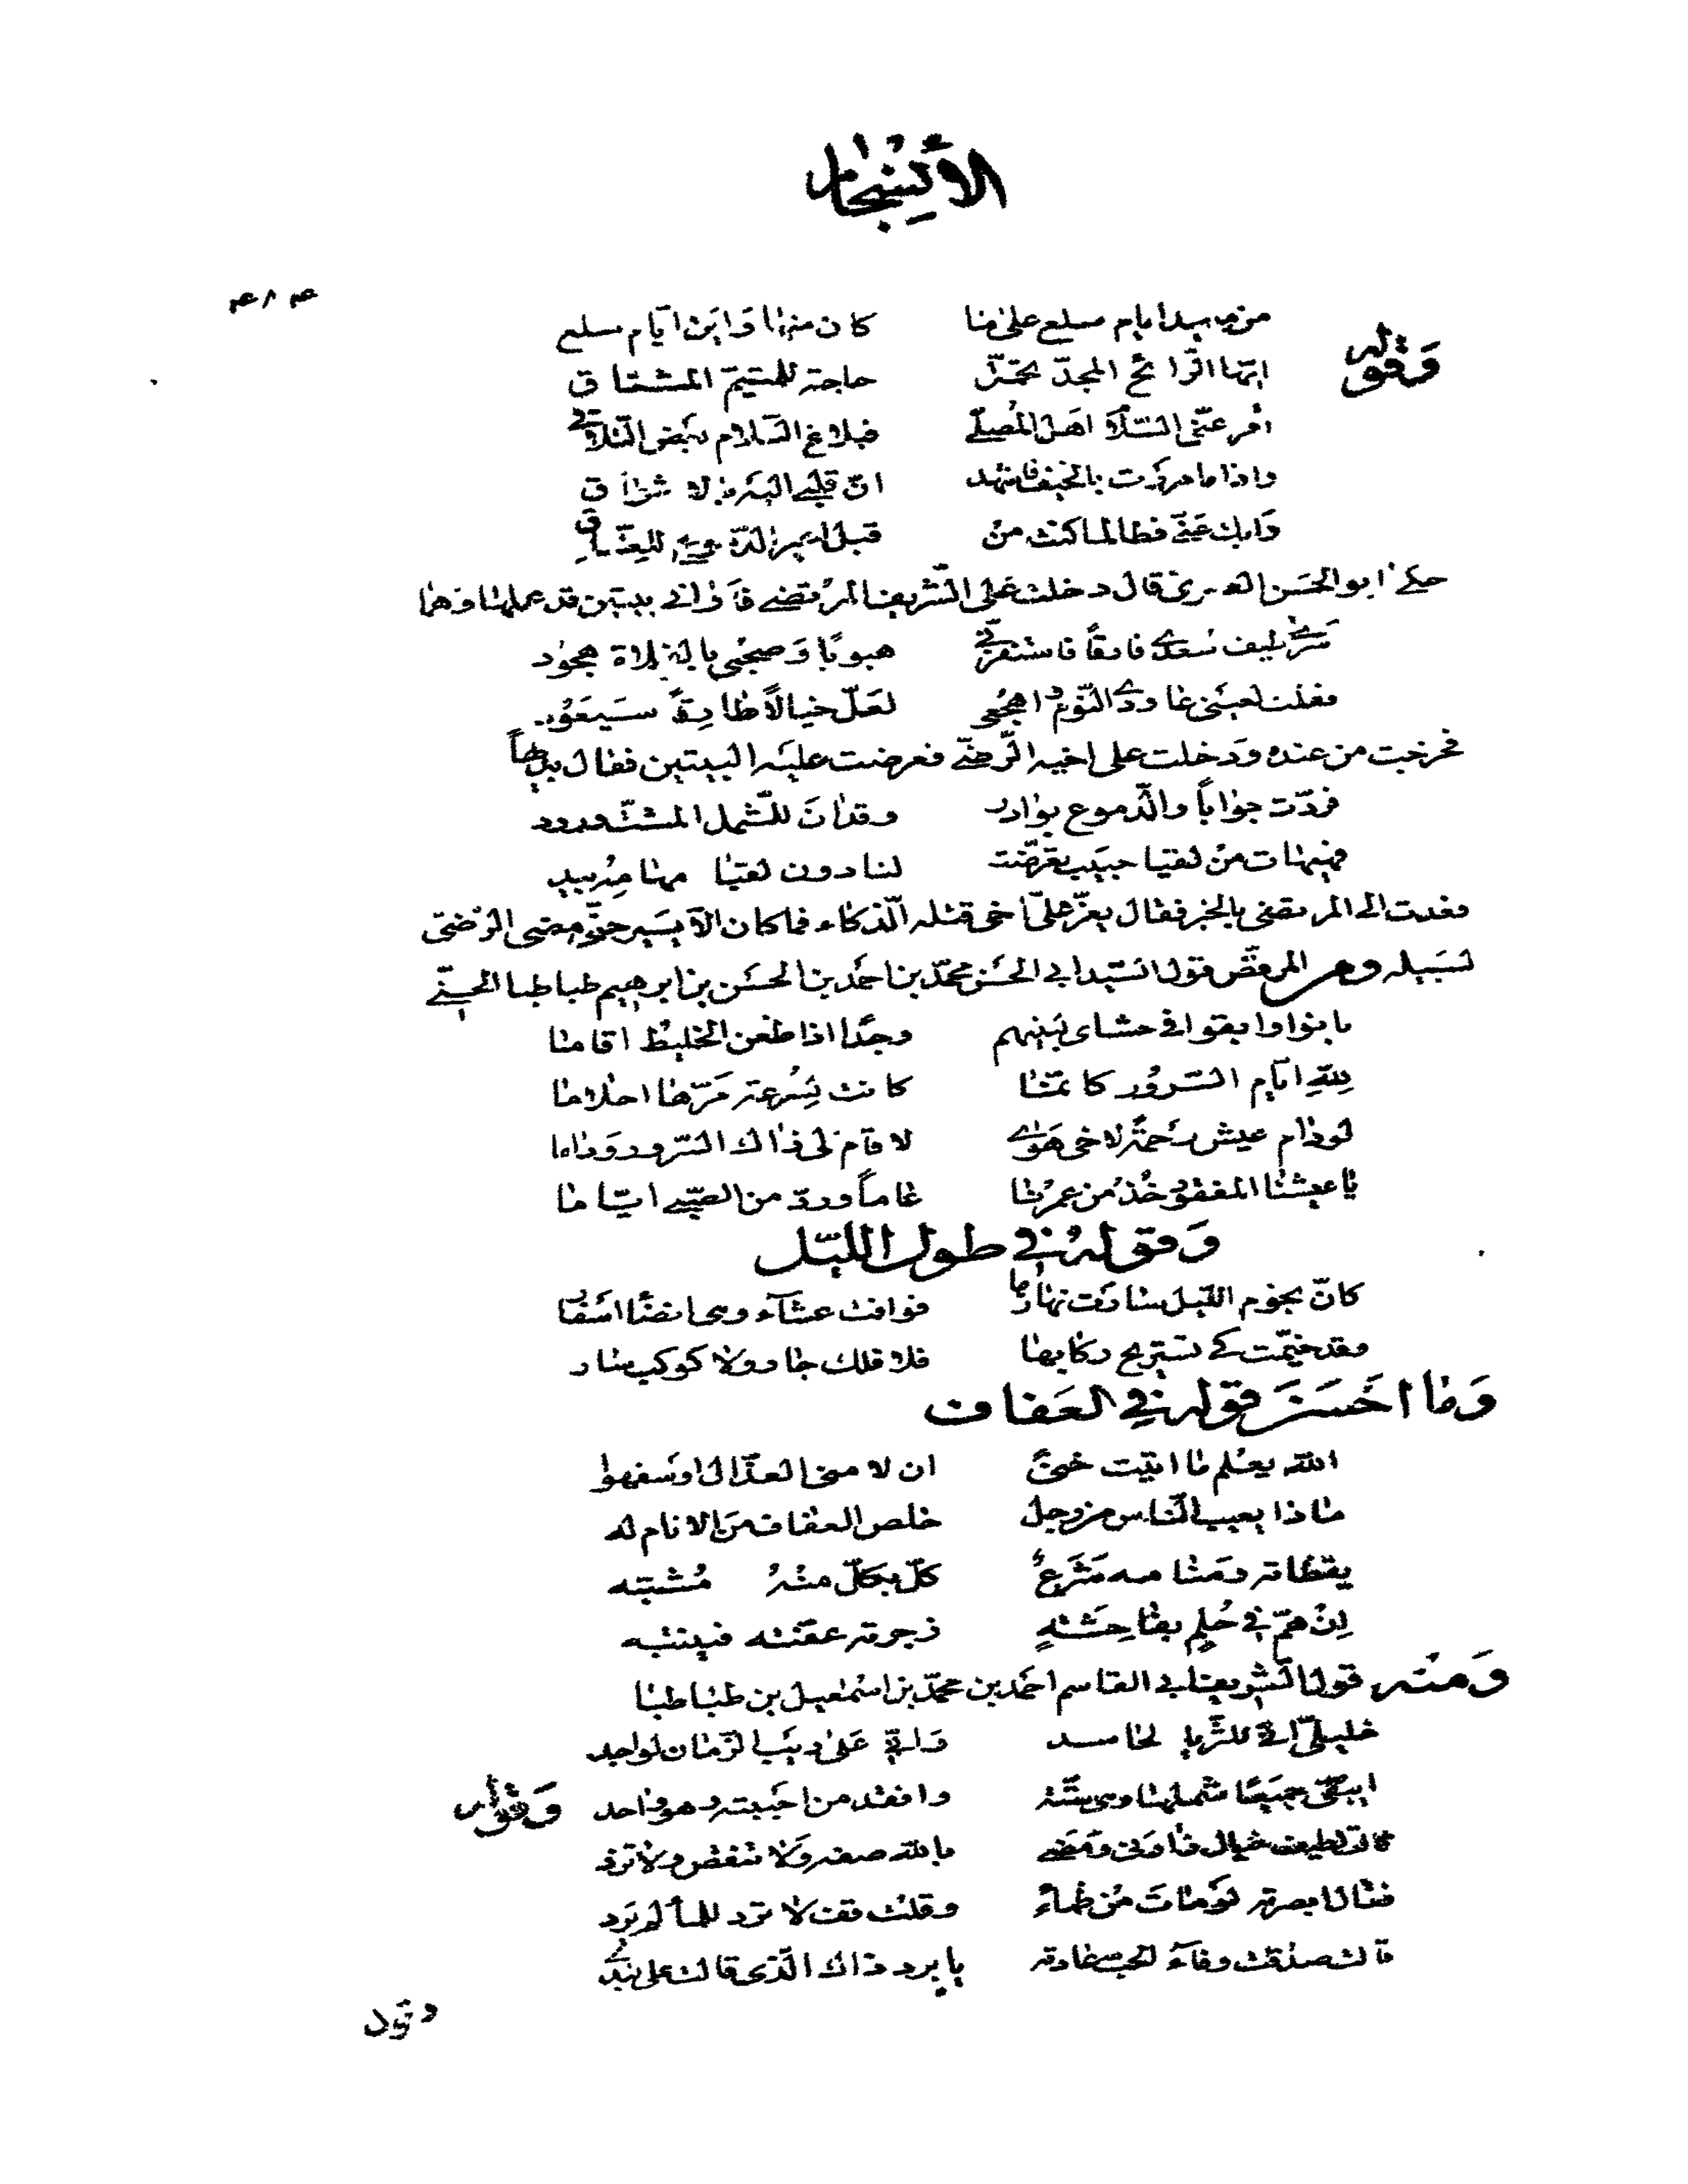 الانسجام
٤٨٤
من معيد ايام سلع على ما كان منها وَاين ايّام سلع
وَقوله
ايّها الرّائح المجدّ تحمّل حاجة للمتيّم المشتاق
اقر عنّي السّلام اهل المُصلّى فبلاغ السّلام بَعض التّلاقي
واذا ما مررت بالخيف فاشهد انّ قلبي اليه بالاشواق
وَابك عنّي فطالما كنت من قبل اعير الدّموع للعشّاق
حكى ابو الحسَن العمري قال دخلت على الشّريف المرتضى فَاَراني بيتين قد عملهما وَهما
سَرى طيف سُعدى طارقًا فاستفزّني هبوبًا وَصحبي بالفلاة هجود
فقلت لعيني عاودي النّوم واهجعي لعَلّ خيالًا طارقًا سَيَعُود
فخرجت من عنده وَدخلت على اخيه الرّضيّ فعرضت عليه البيتين فقال بديهاً
فردّت جوابًا والدّموع بوادر وقد آنَ للشّمل المشتّ ورود
فهيهات من لقيا حبيب تعرّضت لنا دون لقيا مهامِهُ بيد
فعدت الى المرتضى بالخبر فقال يعزّ علىّ اخي قتله الذّكاء فما كان الّا يسَير حتّى مضى الرّضيّ
لسَبيله ومن المرقّص قول السّيد ابي الحسَن محمّد بن احمَد بن الحسَن بن ابرهيم طباطبا الحسَنيّ
بانوا وابقوا في حشاي بَينهم وجدًا اذا ظعن الخليط اقاما
للّهِ ايّام السّرُور كانّما كانت بسُرعة مَرّها احلاما
لودام عيش رَحمةً لاخي هَوى لاقام لي ذاك السّرور وَداما
يا عيشنا المفقود خُذ من عمرنا عاماً وردّ من الصّبى ايّاما
وَقوله في طول الليّل
كانّ نجوم الليّل سارَت نهارها فوافت عشآء وهي انضآء اسَفار
وقد خيّمت كي تستريح ركابها فلا فلك جار ولا كوكب سار
وَما احَسَن قوله في العَفاف
الله يعلم ما اتيت خنىً ان لامني العذّال او سَفهوا
ماذا يعيب النّاس من رجل خلص العفاف من الانام له
يقظاته ومَنامه مَشَرعٌ كلّ بكلّ منهُ مُشتبه
اِن همّ في حُلمٍ بفاحِشَةٍ زجرته عفّته فينتبه
وَمنه قول الشّريف ابي القاسم احمَد بن محمّد بن اسمعيل بن طباطبا
خليلىّ انّي للثّريا لحاسد وَانّي عَلى ريَب الزّمان لواجد
ايبقى جميَعًا شملها وهي ستّة وافقد من احَببته وهو واحد
وَقوله
قالت لطيف خيال زارني وَمَضى بالله صفه وَلا تنقص ولا تزد
فقال ابصرته لوَ ماتَ من ظمأٍ وقلت قف لا ترد للمآء لم يَرد
قالت صدقت وفآءُ الحبّ عادته يا برد ذاك الّذي قالت على كبدي